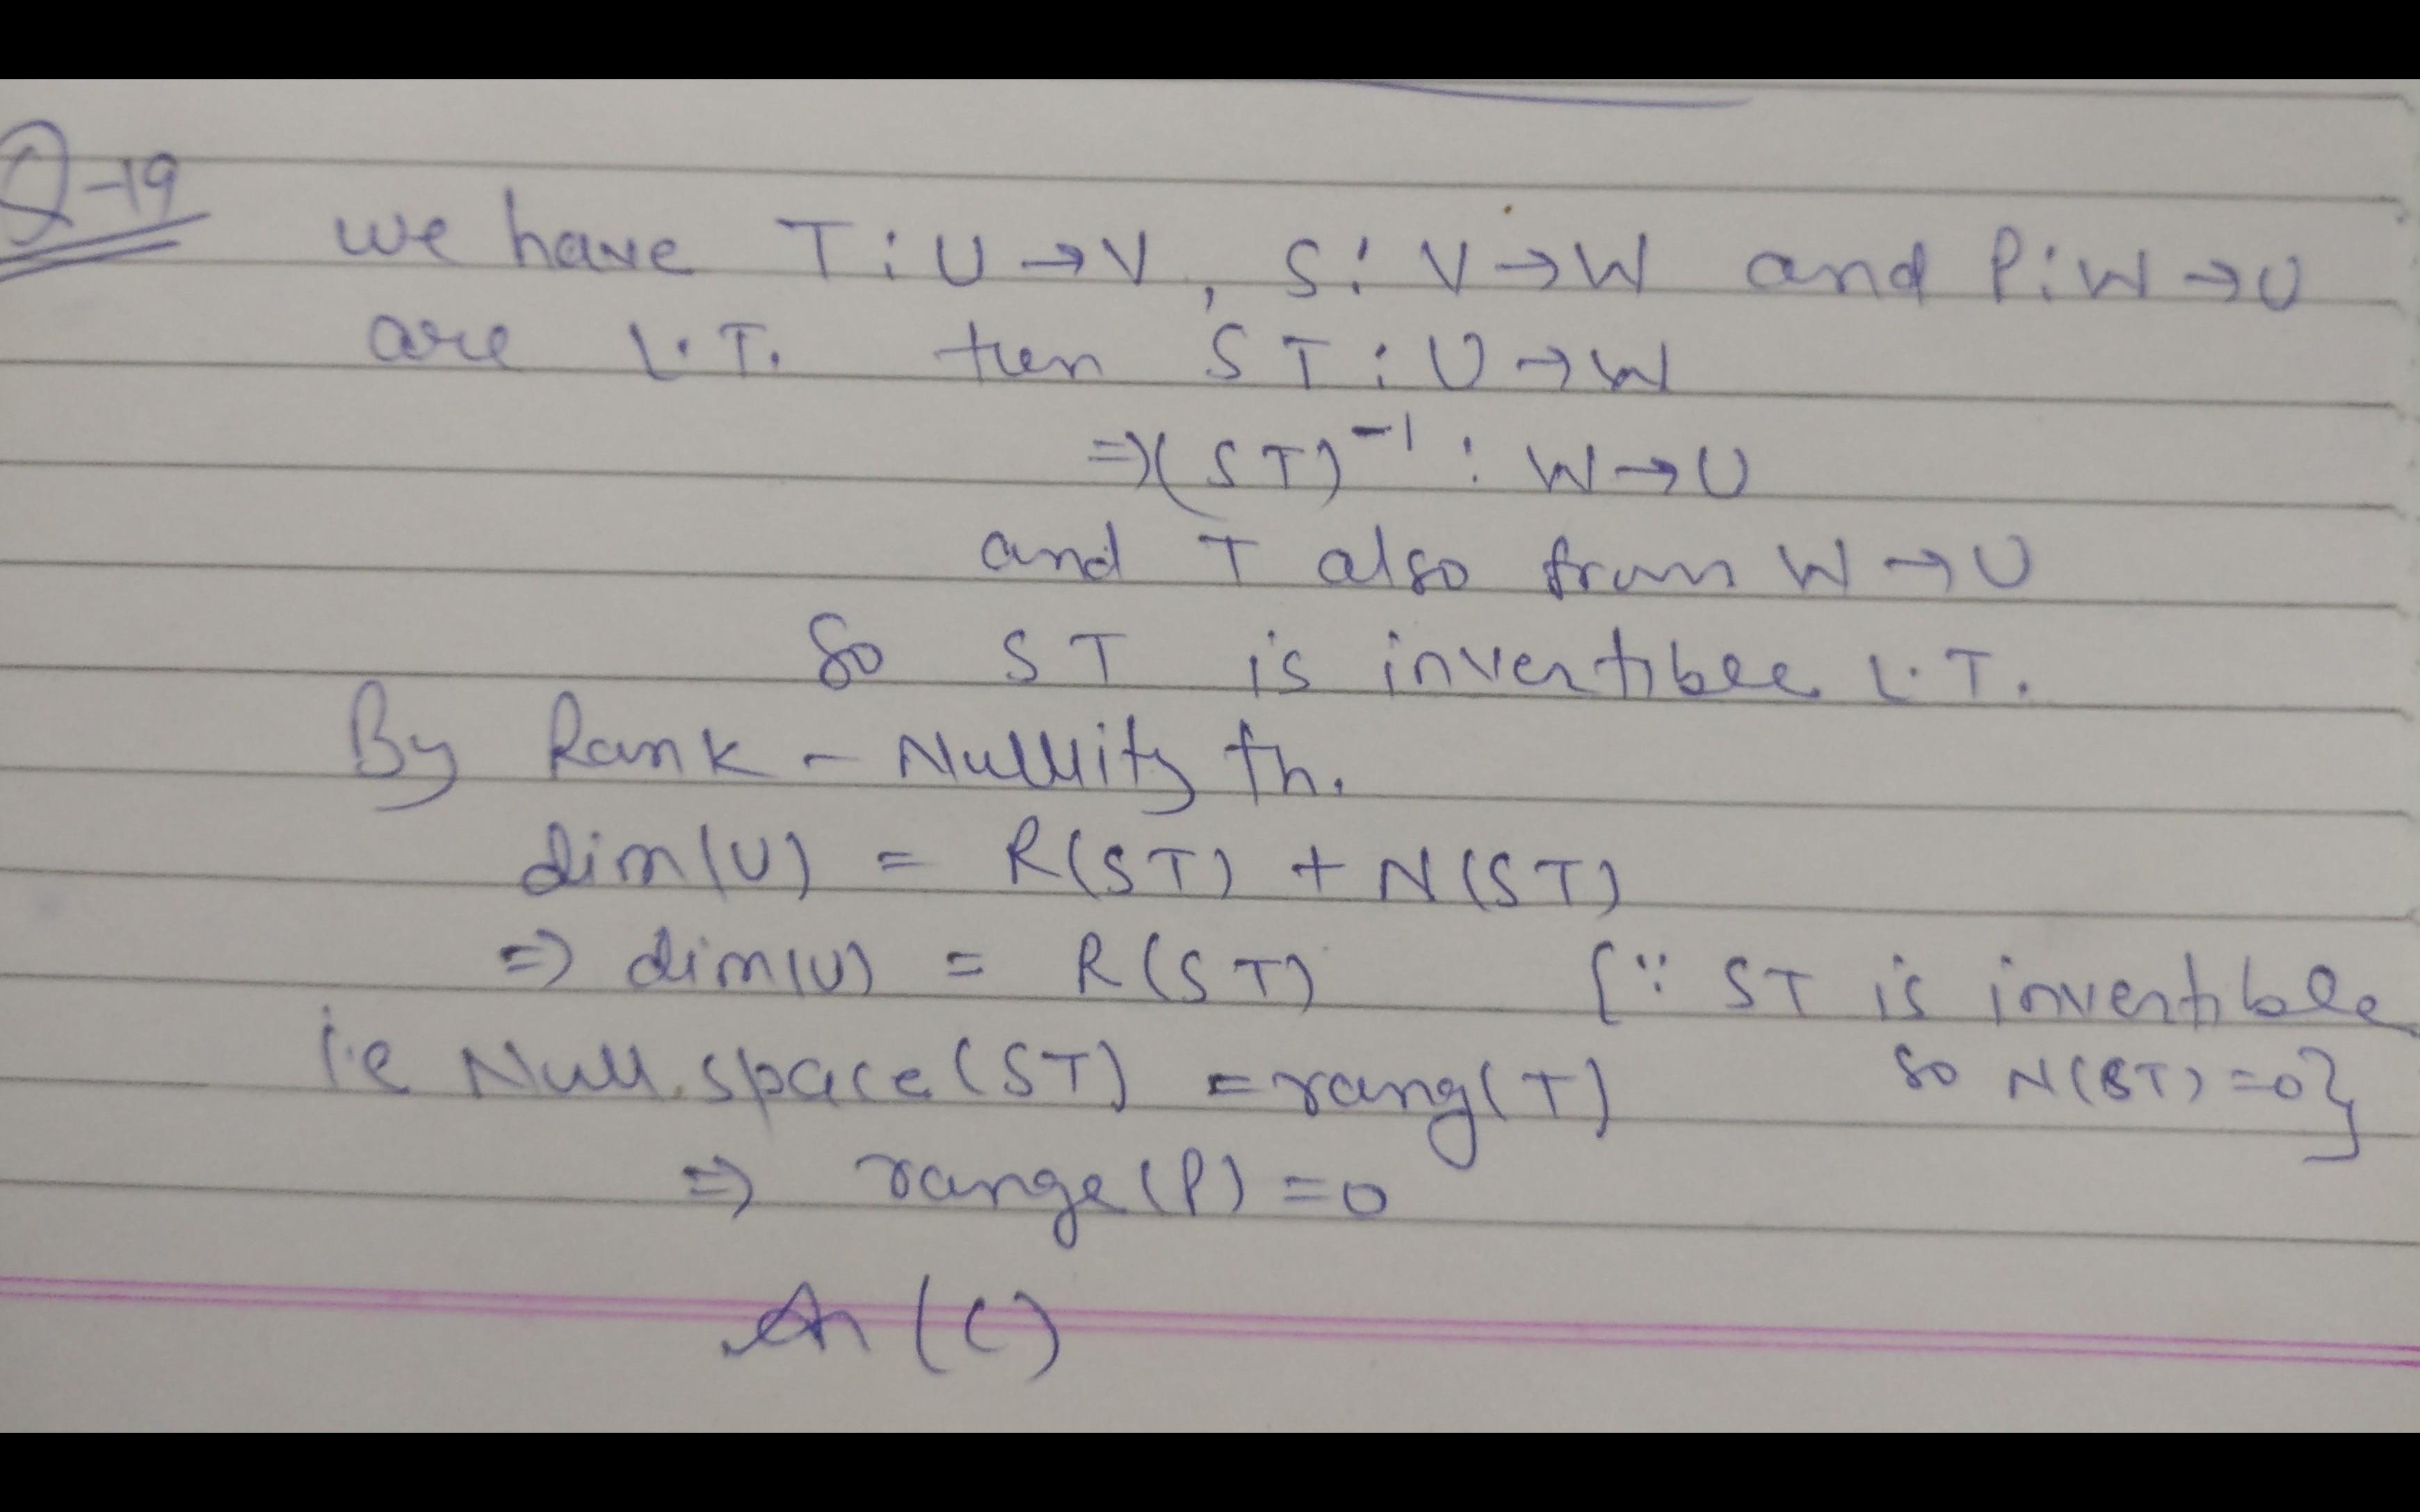 Q-19
we have T : U → V, S : V → W and P : W → U
are L.T. then ST : U → W
⇒ (ST)⁻¹ : W → U
and T also from W → U
So ST is invertible L.T.
By Rank - Nullity th.
dim(U) = R(ST) + N(ST)
⇒ dim(U) = R(ST) {∵ ST is invertible
i.e Null space(ST) = rang(T) so N(ST) = 0}
⇒ range(P) = 0
An (C)